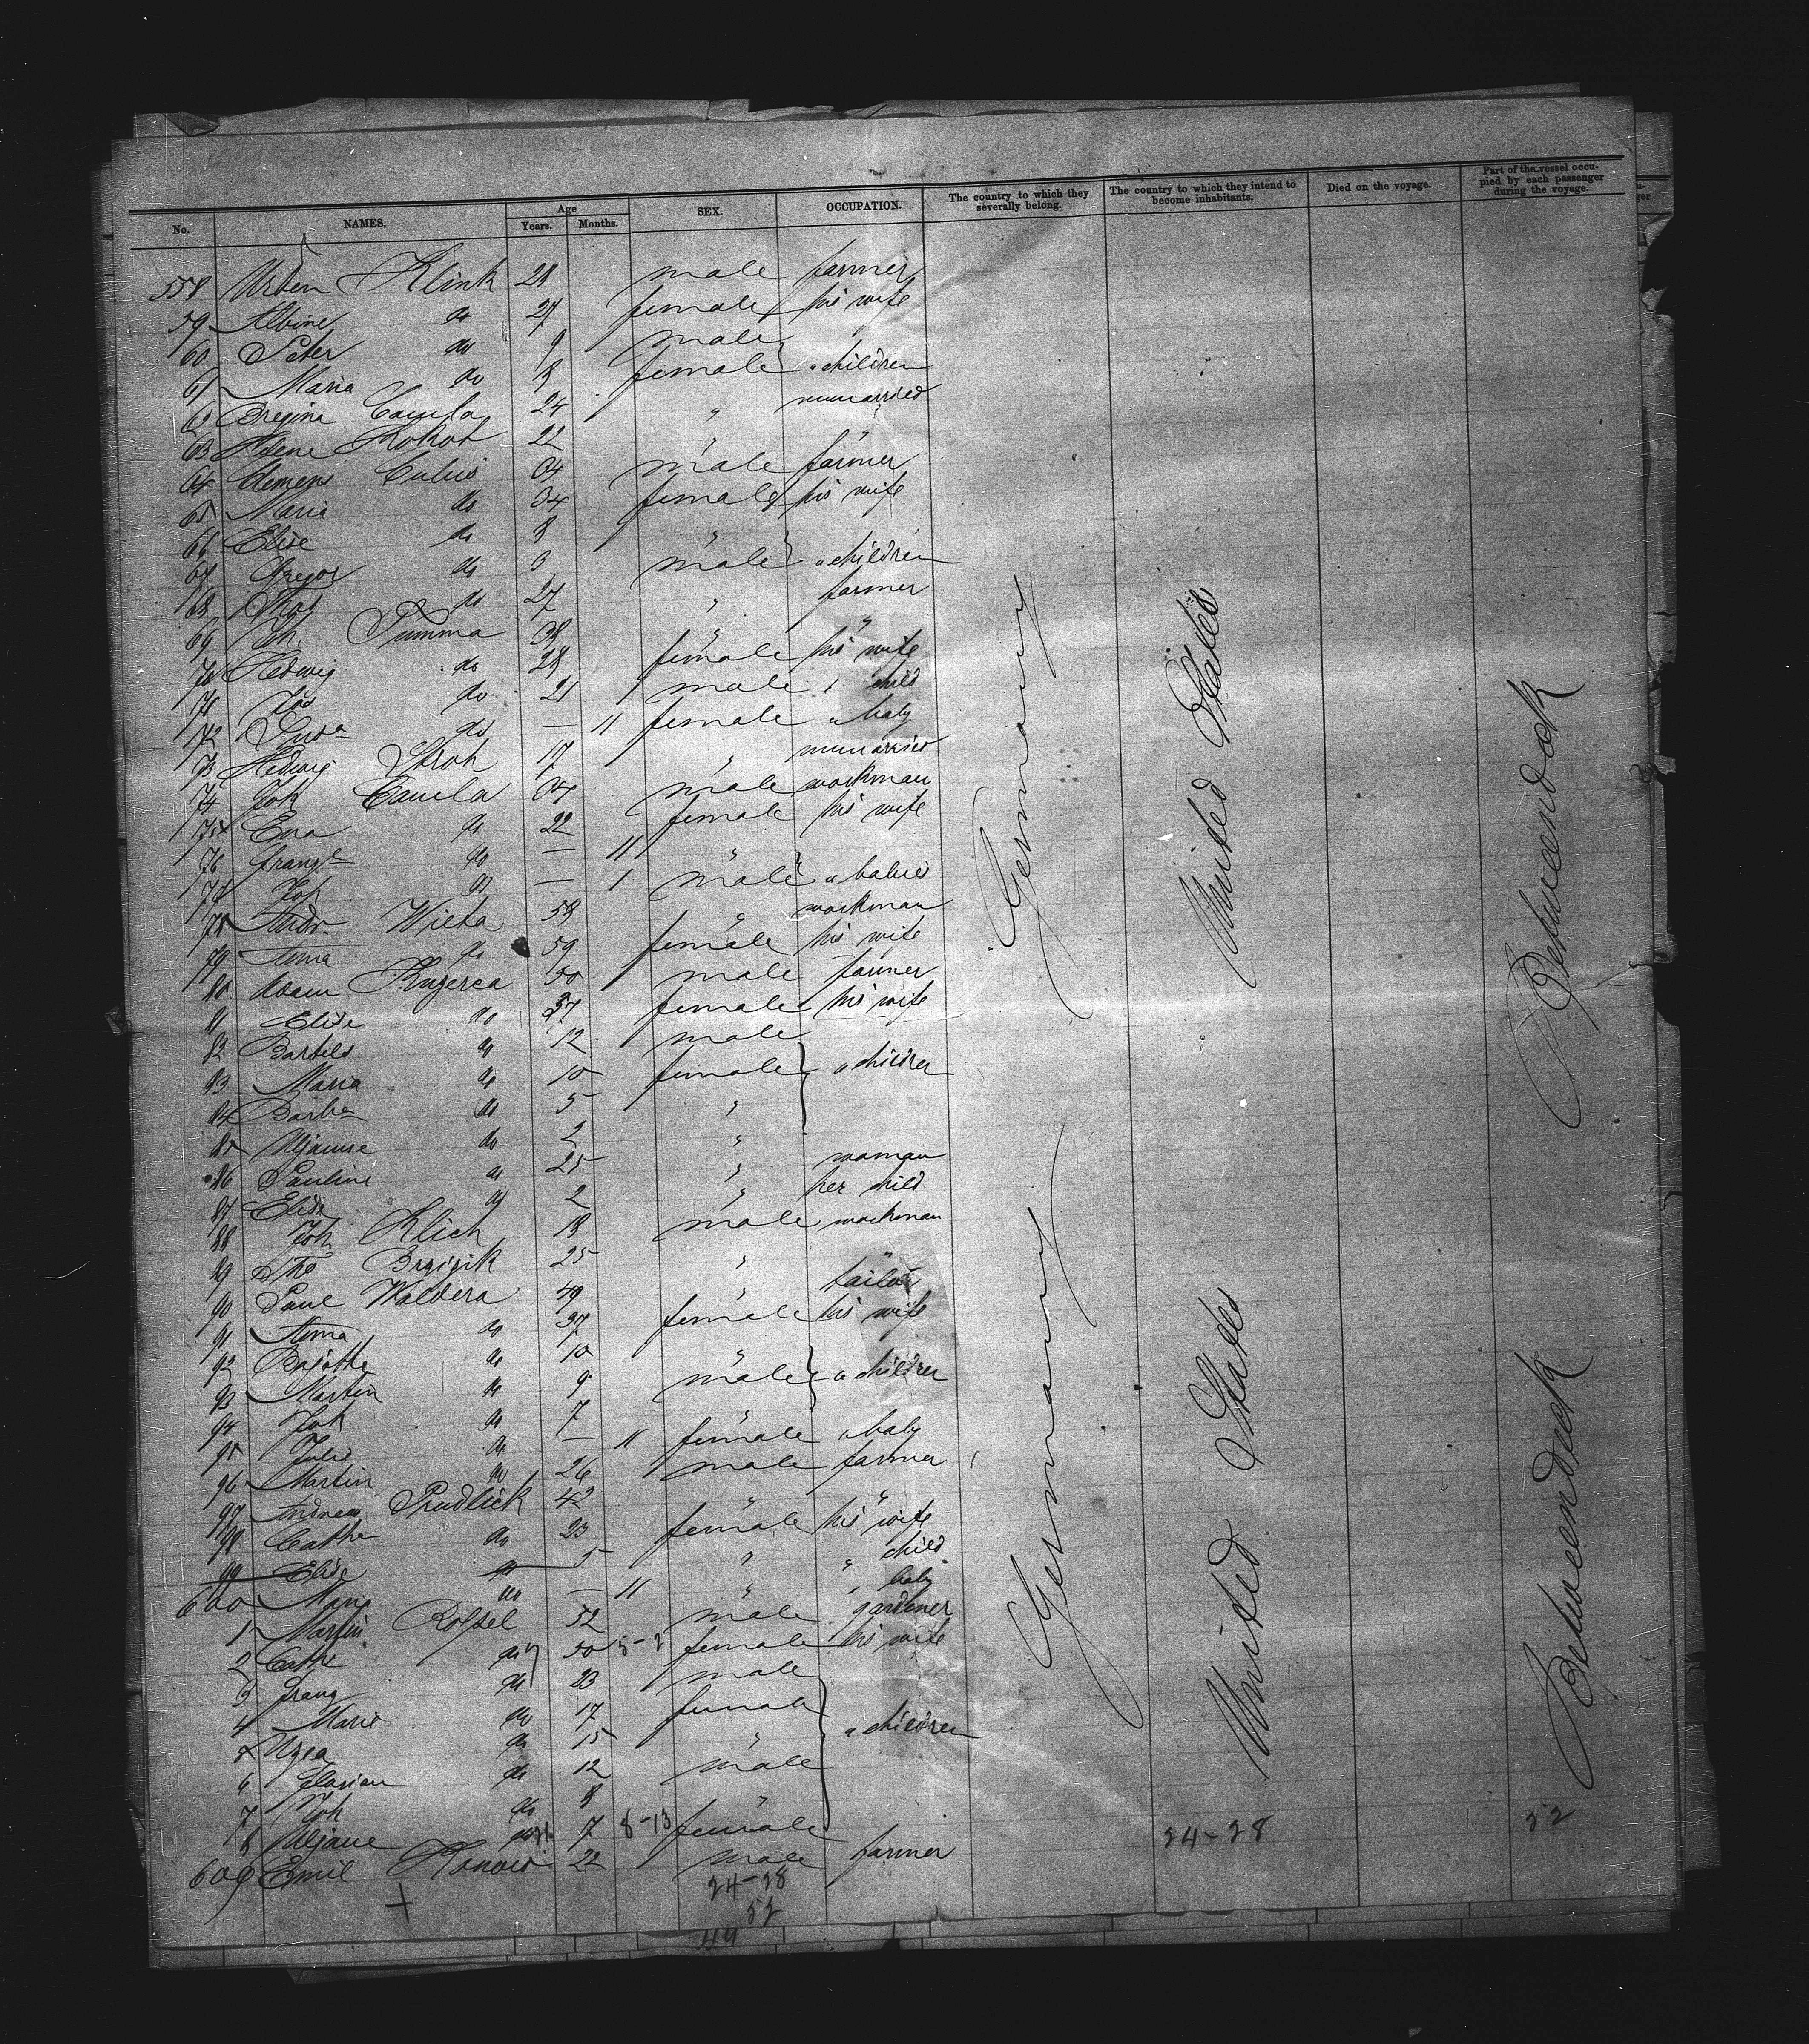 No. NAMES. Age Years. Months. SEX. OCCUPATION. The country to which they severally belong. The country to which they intend to become inhabitants. Died on the voyage. Part of the vessel occupied by each passenger during the voyage.
558 Urban Klink 28 male farmer
59 Albine do 27 female his wife
60 Peter do 9 male
61 Maria do 8 female " children
62 24 " unmarried
63 Helene Kokot 22 " "
64 Clemens 34 male farmer
65 Maria do 34 female his wife
66 Elise do 8 "
67 Gregor do 3 male " children
68 do 27 " farmer
69 Joh. Pumma 38 " "
70 Hedwig do 28 female his wife
71 Jos do 21 male " child
72 Susa do — 11 female " baby
73 Hedwig 17 " unmarried
74 Joh 34 male workman
75 Eva do 22 female his wife
76 do — 11 "
77 Joh do — 1 male " babies
78 Andr Wieta 58 " workman
79 Anna do 59 female his wife
80 Adam 50 male farmer
81 Elise do 37 female his wife
82 do 12 male
83 Maria do 10 female " children
84 Barba do 5 "
85 do 2 "
86 Pauline do 25 " woman
87 Elise do 2 " her child
88 Joh Klich 18 male workman
89 Tho Brzizik 25 " "
90 Paul Waldera 49 " tailor
91 Anna do 37 female his wife
92 do 10 "
93 Martin do 9 male " children
94 Joh do 7 "
95 Julie do — 11 female " baby
96 Martin do 26 male farmer
97 Andreas Prudlick 42 " "
98 Cathe do 23 female his wife
99 Elise do 5 " " child
600 Maria do — 11 " " baby
1 Martin 52 male gardener
2 Cathe do 50 5-2 female his wife
3 Franz do 23 male
4 Marie do 17 female
5 do 15 " " children
6 Florian do 12 male
7 Joh do 8 "
8 do 7 8-13 female
609 Emil 22 male farmer
Germany
United States
Betweendeck
Germany
United States
Betweendeck
24-28
52
24-28
52
44